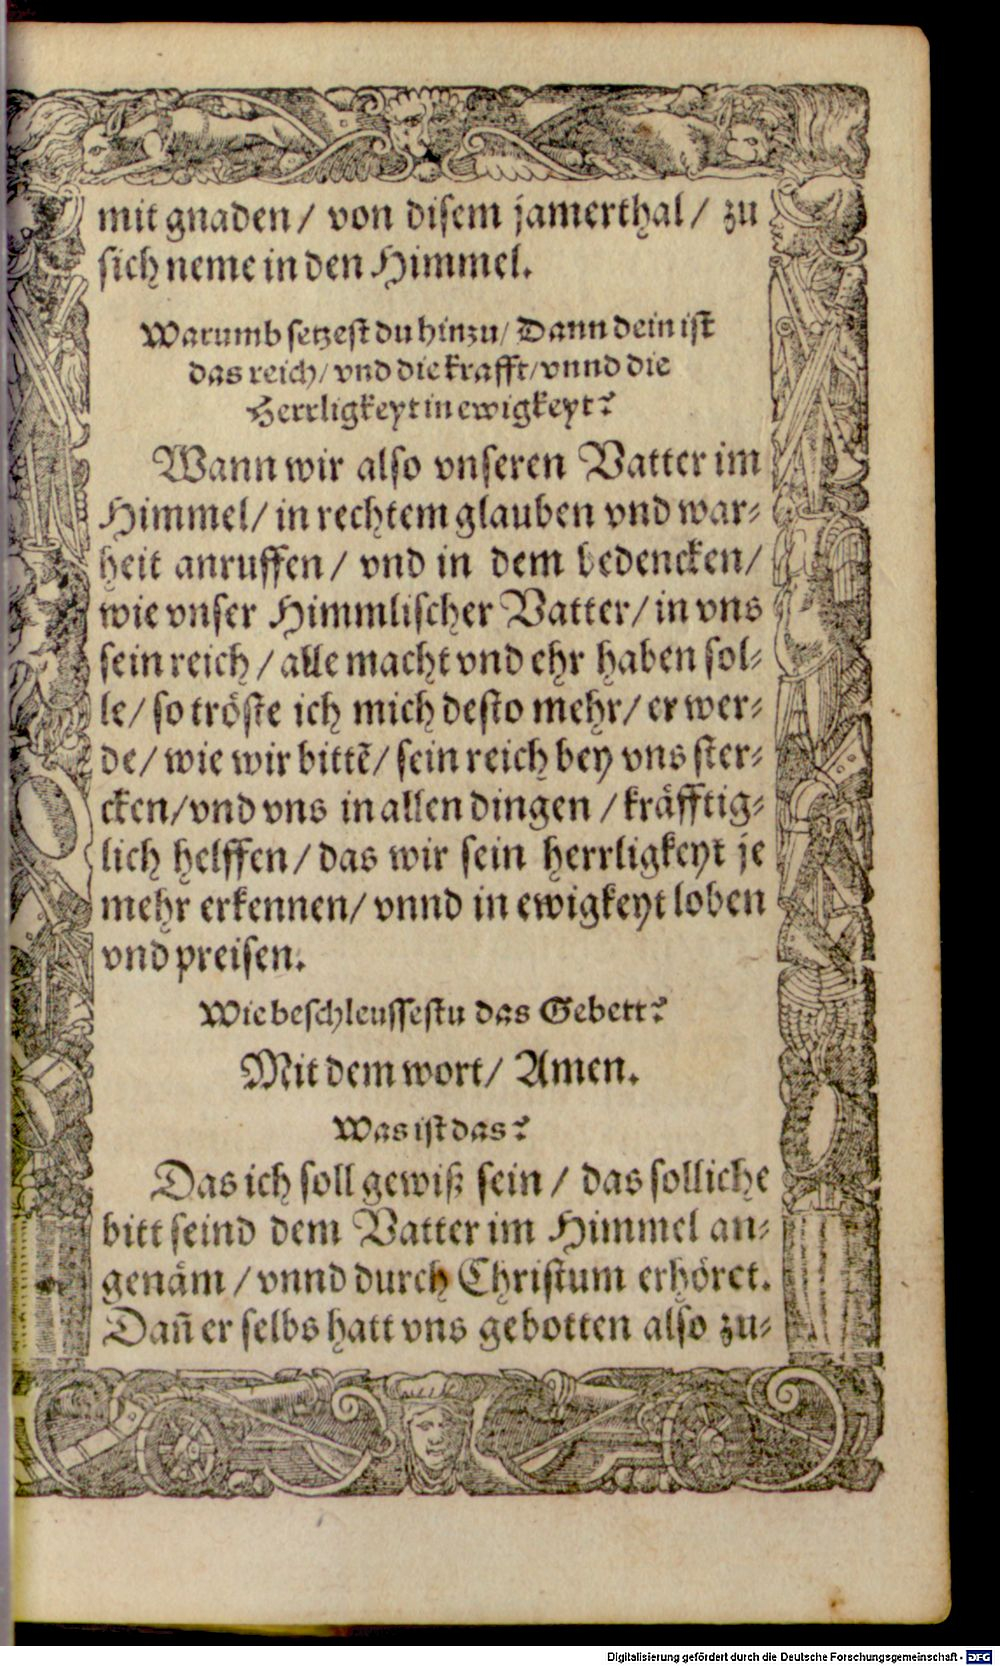 mit gnaden / von disem jamerthal / zu
sich neme in den Himmel.
Warumb setzest du hinzu / Dann dein ist
das reich / vnd die krafft / vnnd die
Herrligkeyt in ewigkeyt?
Wann wir also vnseren Vatter im
Himmel / in rechtem glauben vnd war⸗
heit anruffen / vnd in dem bedencken /
wie vnser Himmlischer Vatter / in vns
sein reich / alle macht vnd ehr haben sol⸗
le / so tröste ich mich desto mehr / er wer⸗
de / wie wir bittẽ / sein reich bey vns ster⸗
cken / vnd vns in allen dingen / kräfftig⸗
lich helffen / das wir sein herrligkeyt je
mehr erkennen / vnnd in ewigkeyt loben
vnd preisen.
Wie beschleussestu das Gebett?
Mit dem wort / Amen.
Was ist das?
Das ich soll gewiß sein / das solliche
bitt seind dem Vatter im Himmel an⸗
genäm / vnnd durch Christum erhöret.
Dañ er selbs hatt vns gebotten also zu⸗
Digitalisierung gefördert durch die Deutsche Forschungsgemeinschaft - DFG